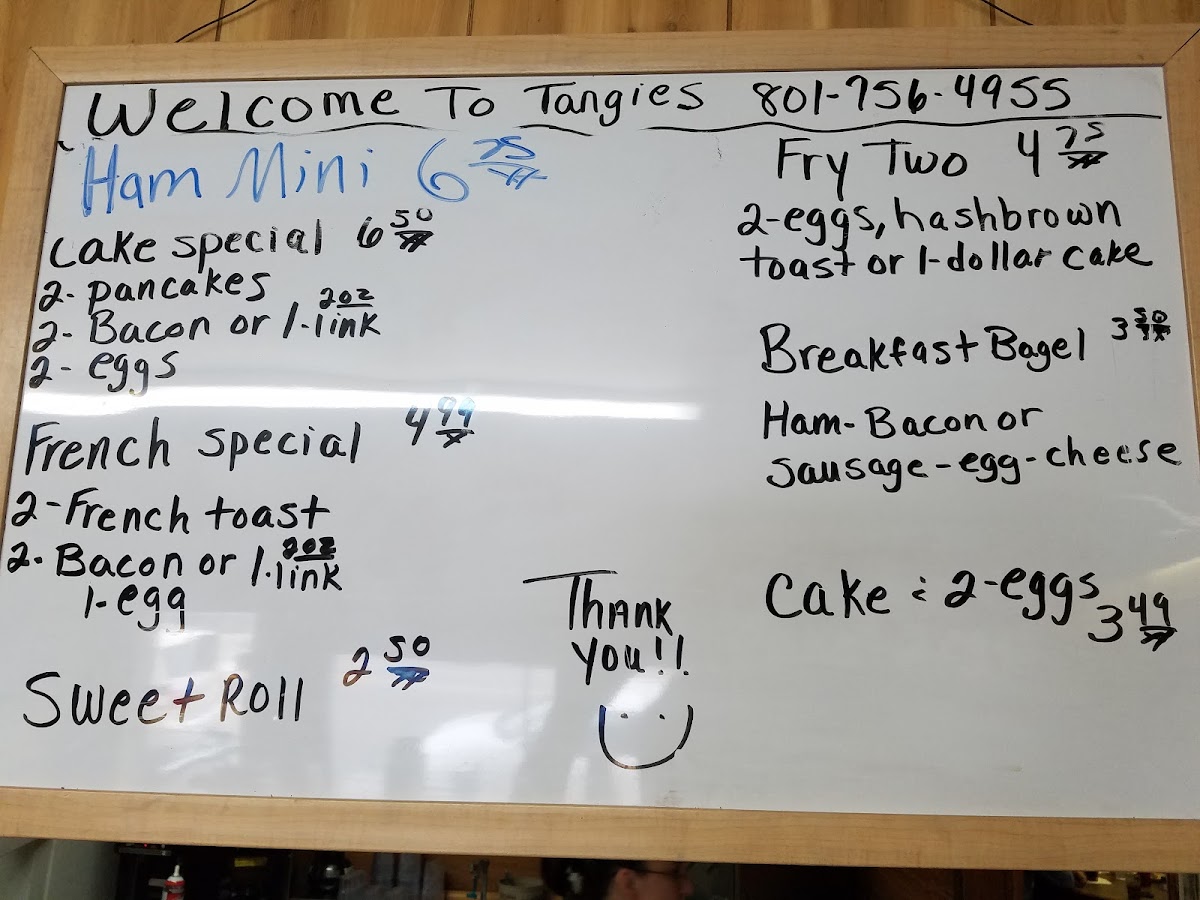 Welcome To Tangies 801-756-4955
Ham Mini 6 75
Cake special 6 50
2- pancakes
2- Bacon or 1-2oz link
2- eggs
French special 4 99
2-French toast
2- Bacon or 1-2oz link
1-egg
Sweet Roll 2 50
Thank
you!!
Fry Two 4 75
2-eggs, hashbrown
toast or 1-dollar cake
Breakfast Bagel 3 50
Ham-Bacon or
sausage-egg-cheese
Cake : 2-eggs 3 49